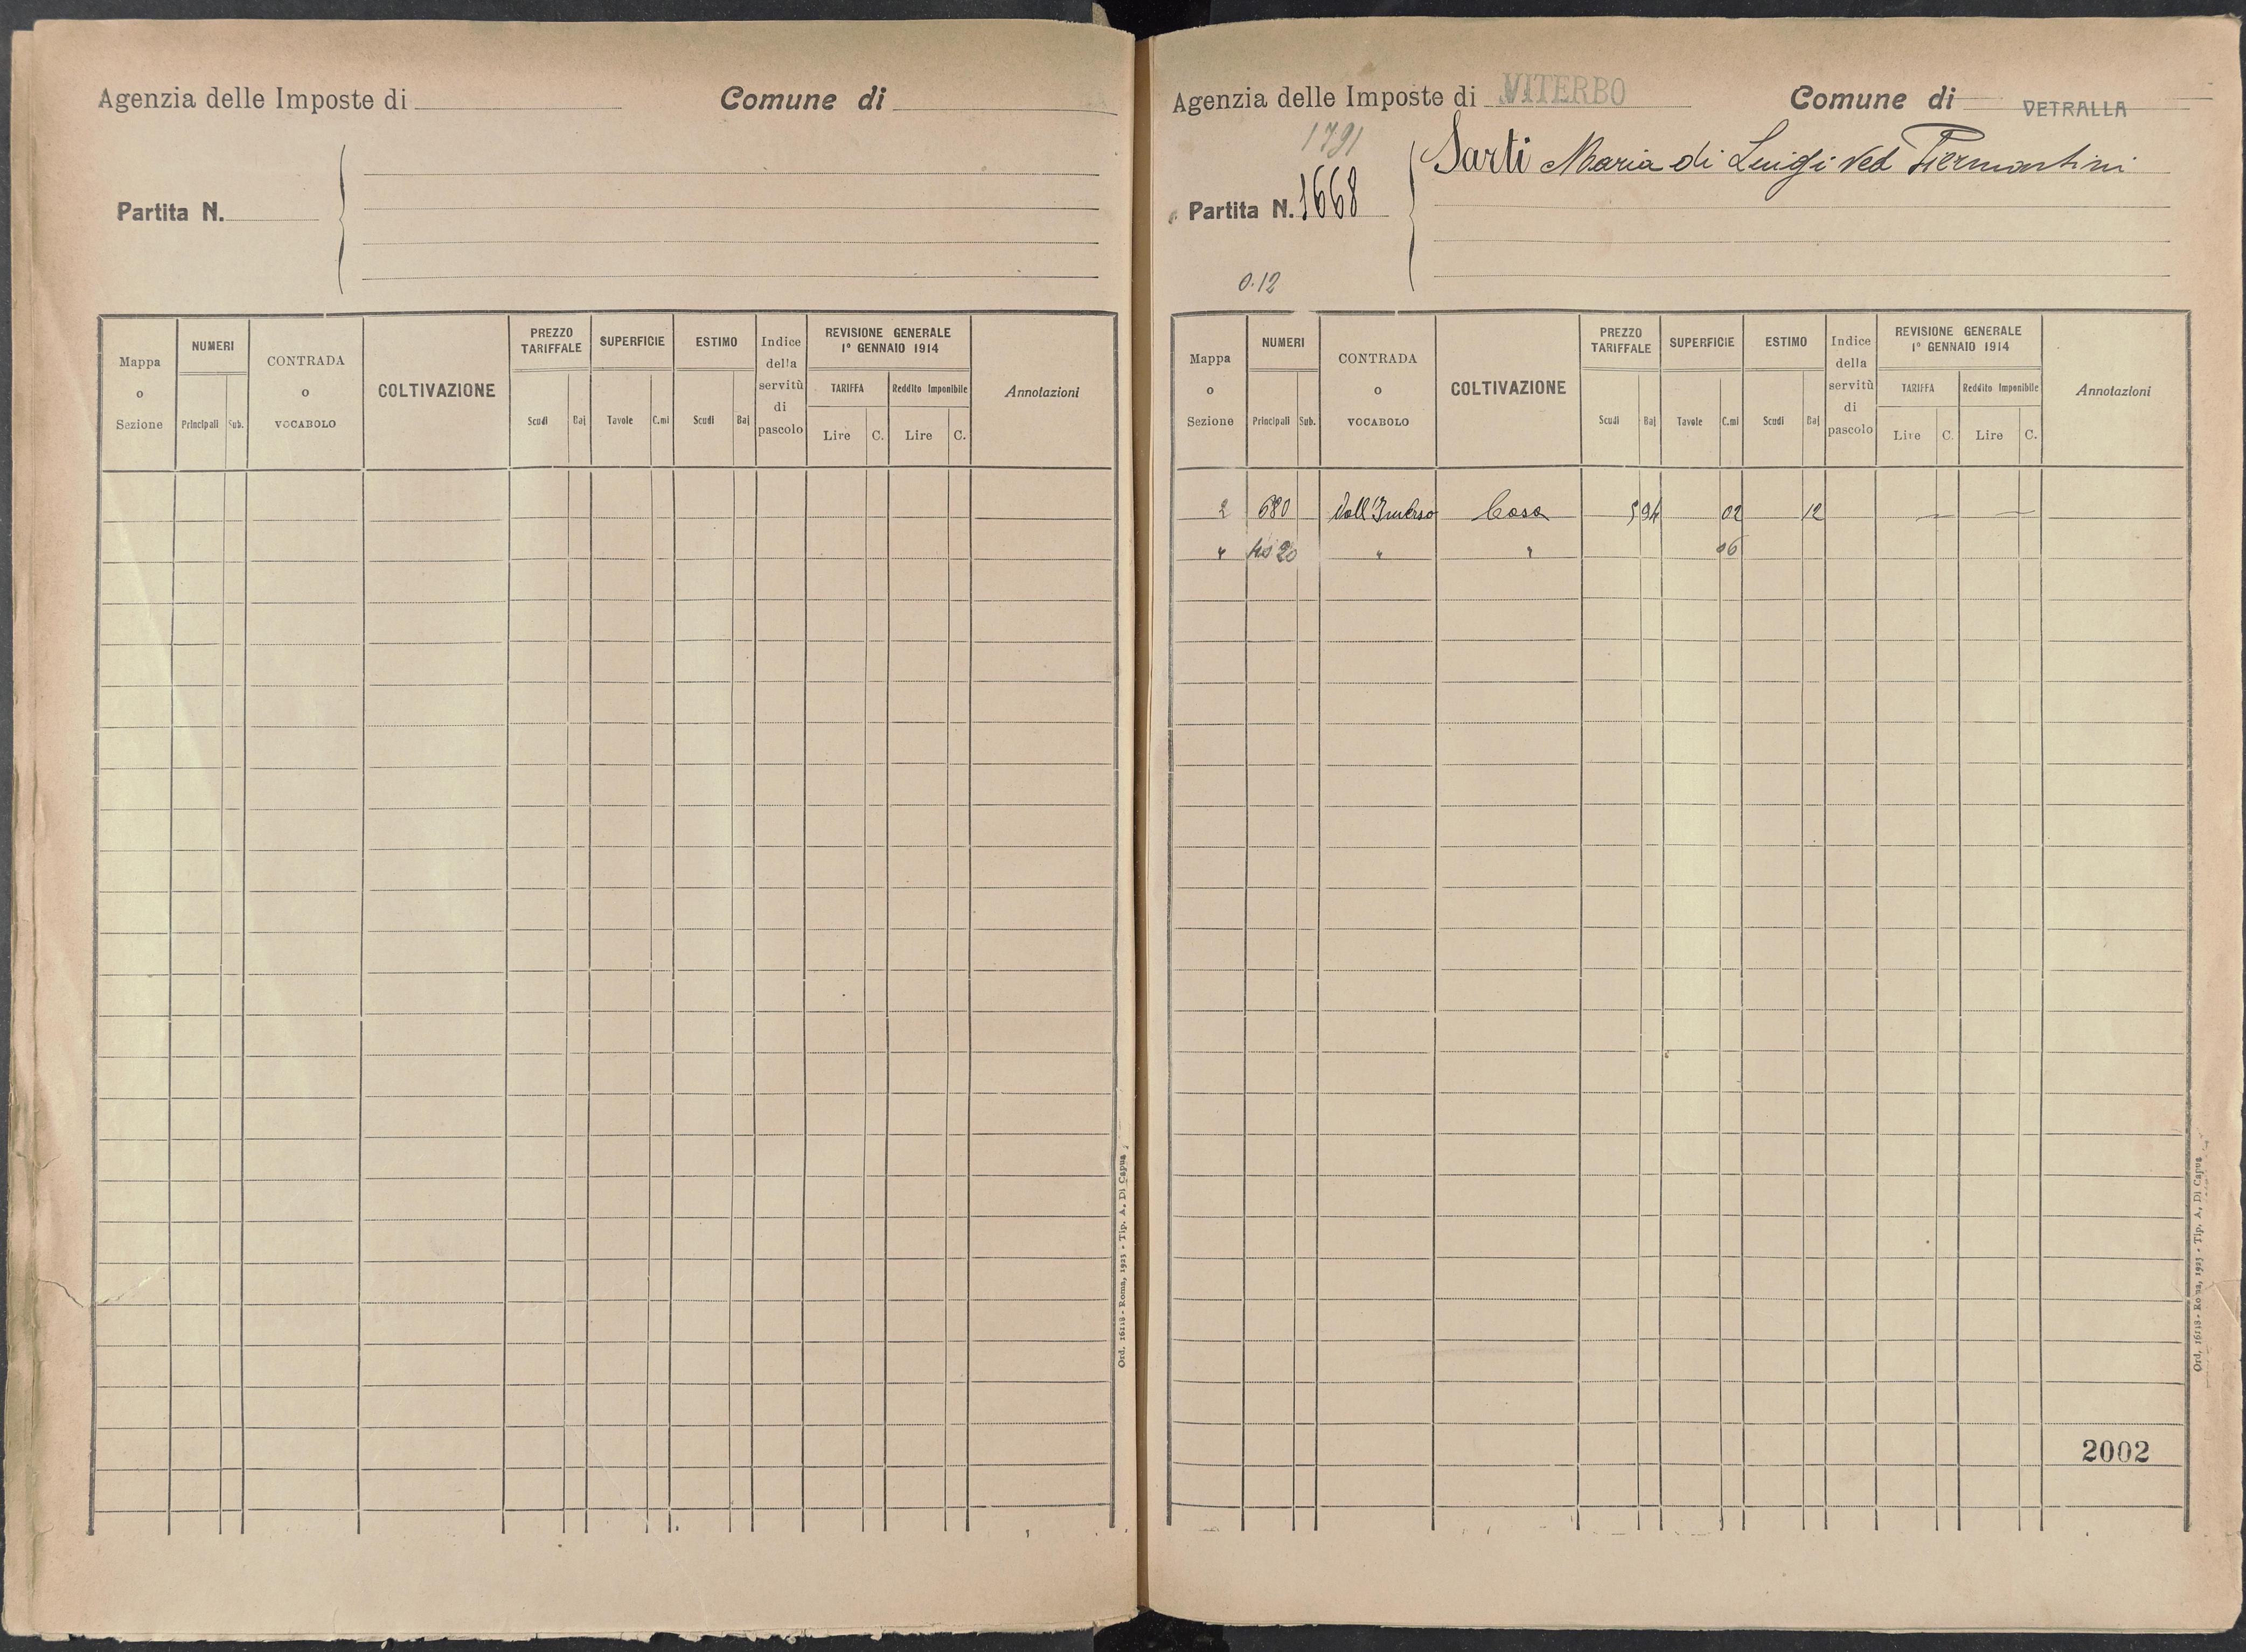 Agenzia delle Imposte di
Comune di
Partita N.
Mappa o Sezione
NUMERI
Principali Sub.
CONTRADA o VOCABOLO
COLTIVAZIONE
PREZZO TARIFFALE
Scudi Baj
SUPERFICIE
Tavole C.mi
ESTIMO
Scudi Baj
Indice della servitù di pascolo
REVISIONE GENERALE
1° GENNAIO 1914
TARIFFA Reddito Imponibile
Lire C. Lire C.
Annotazioni
Ord. 16118 - Roma, 1923 - Tip. A. Di Capua
Agenzia delle Imposte di VITERBO
Comune di VETRALLA
1791
Sarti Maria di Luigi Ved Piermartini
Partita N. 1668
0.12
Mappa o Sezione
NUMERI
Principali Sub.
CONTRADA o VOCABOLO
COLTIVAZIONE
PREZZO TARIFFALE
Scudi Baj
SUPERFICIE
Tavole C.mi
ESTIMO
Scudi Baj
Indice della servitù di pascolo
REVISIONE GENERALE
1° GENNAIO 1914
TARIFFA Reddito Imponibile
Lire C. Lire C.
Annotazioni
2 680 Casa 5 94 02 12 — —
" " " 06
2002
Ord. 16118 - Roma, 1923 - Tip. A. Di Capua